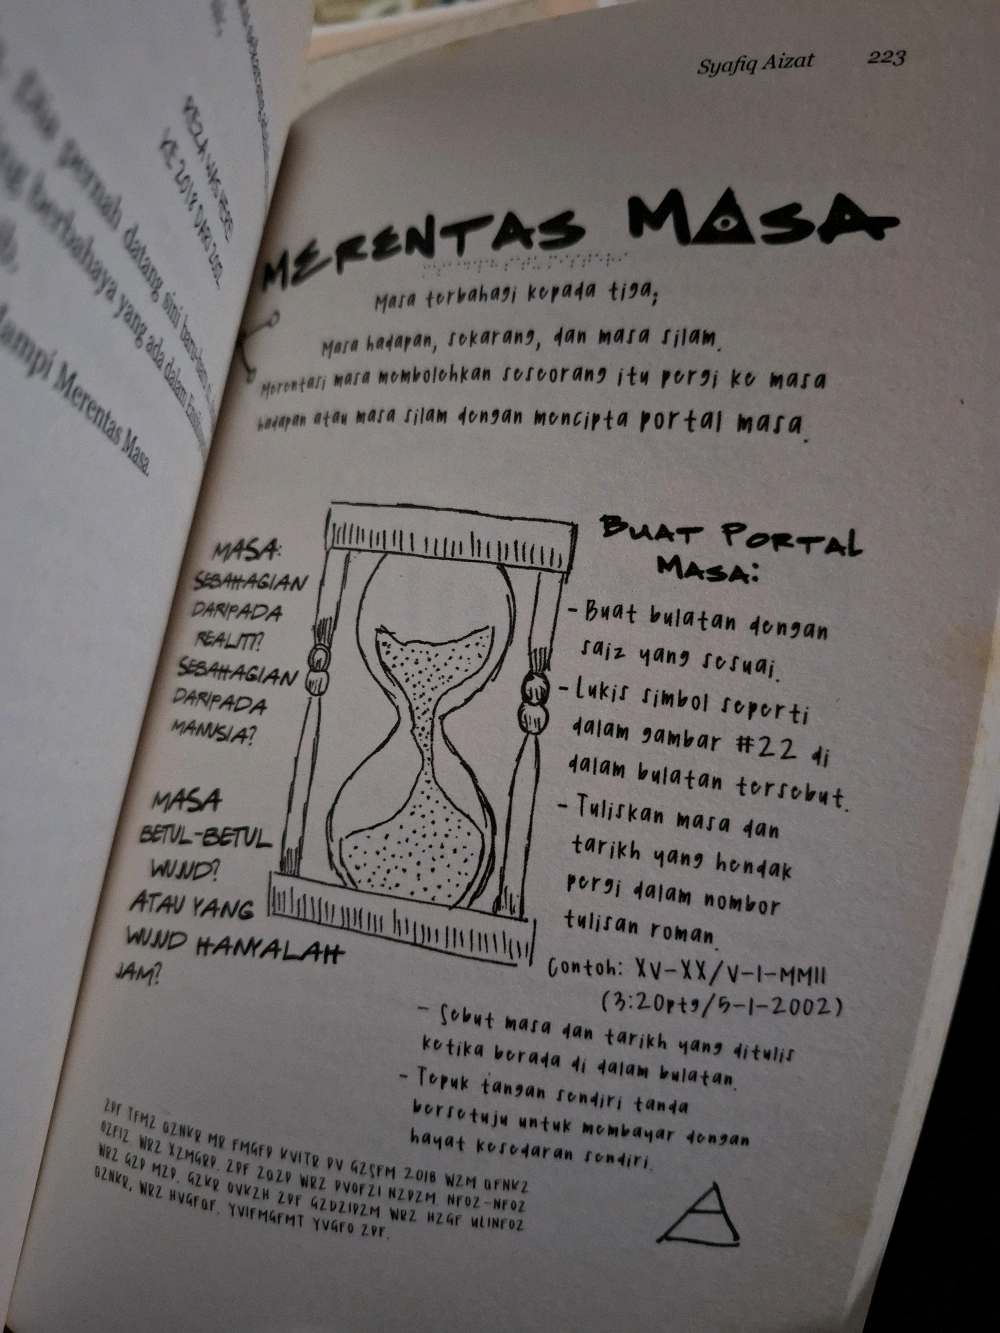 Syafiq Aizat 223
MERENTAS MASA
Masa terbahagi kepada tiga;
Masa hadapan, sekarang, dan masa silam.
Merentasi masa membolehkan seseorang itu pergi ke masa
hadapan atau masa silam dengan mencipta portal masa.
MASA:
SEBAHAGIAN
DARIPADA
REALITI?
SEBAHAGIAN
DARIPADA
MANUSIA?
MASA
BETUL-BETUL
WUJUD?
ATAU YANG
WUJUD HANYALAH
JAM?
BUAT PORTAL
MASA:
- Buat bulatan dengan
saiz yang sesuai.
- Lukis simbol seperti
dalam gambar #22 di
dalam bulatan tersebut.
- Tuliskan masa dan
tarikh yang hendak
pergi dalam nombor
tulisan roman.
Contoh: XV-XX/V-I-MMII
(3:20ptg/5-1-2002)
- Sebut masa dan tarikh yang ditulis
ketika berada di dalam bulatan.
- Tepuk tangan sendiri tanda
bersetuju untuk membayar dengan
hayat kesedaran sendiri.
ZPF TFMZ OZNKR MR FMGFP KVITR PV GZSFM 2018 WZM QFNKZ
OZFIZ. WRZ XZMGRP. ZPF ZQZP WRZ PVOFZI NZPZM. NFOZ-NFOZ
WRZ GZP MZP. GZKR OVKZH ZPF GZDZIPZM WRZ HZGF ULINFOZ
OZNKR, WRZ HVGFQF. YVIFMGFMT YVGFO ZPF.
REZA WAS HERE
KE 2018 DARI 2002.
Dia pernah datang sini baru-baru
berbahaya yang ada dalam
lampi Merentas Masa.